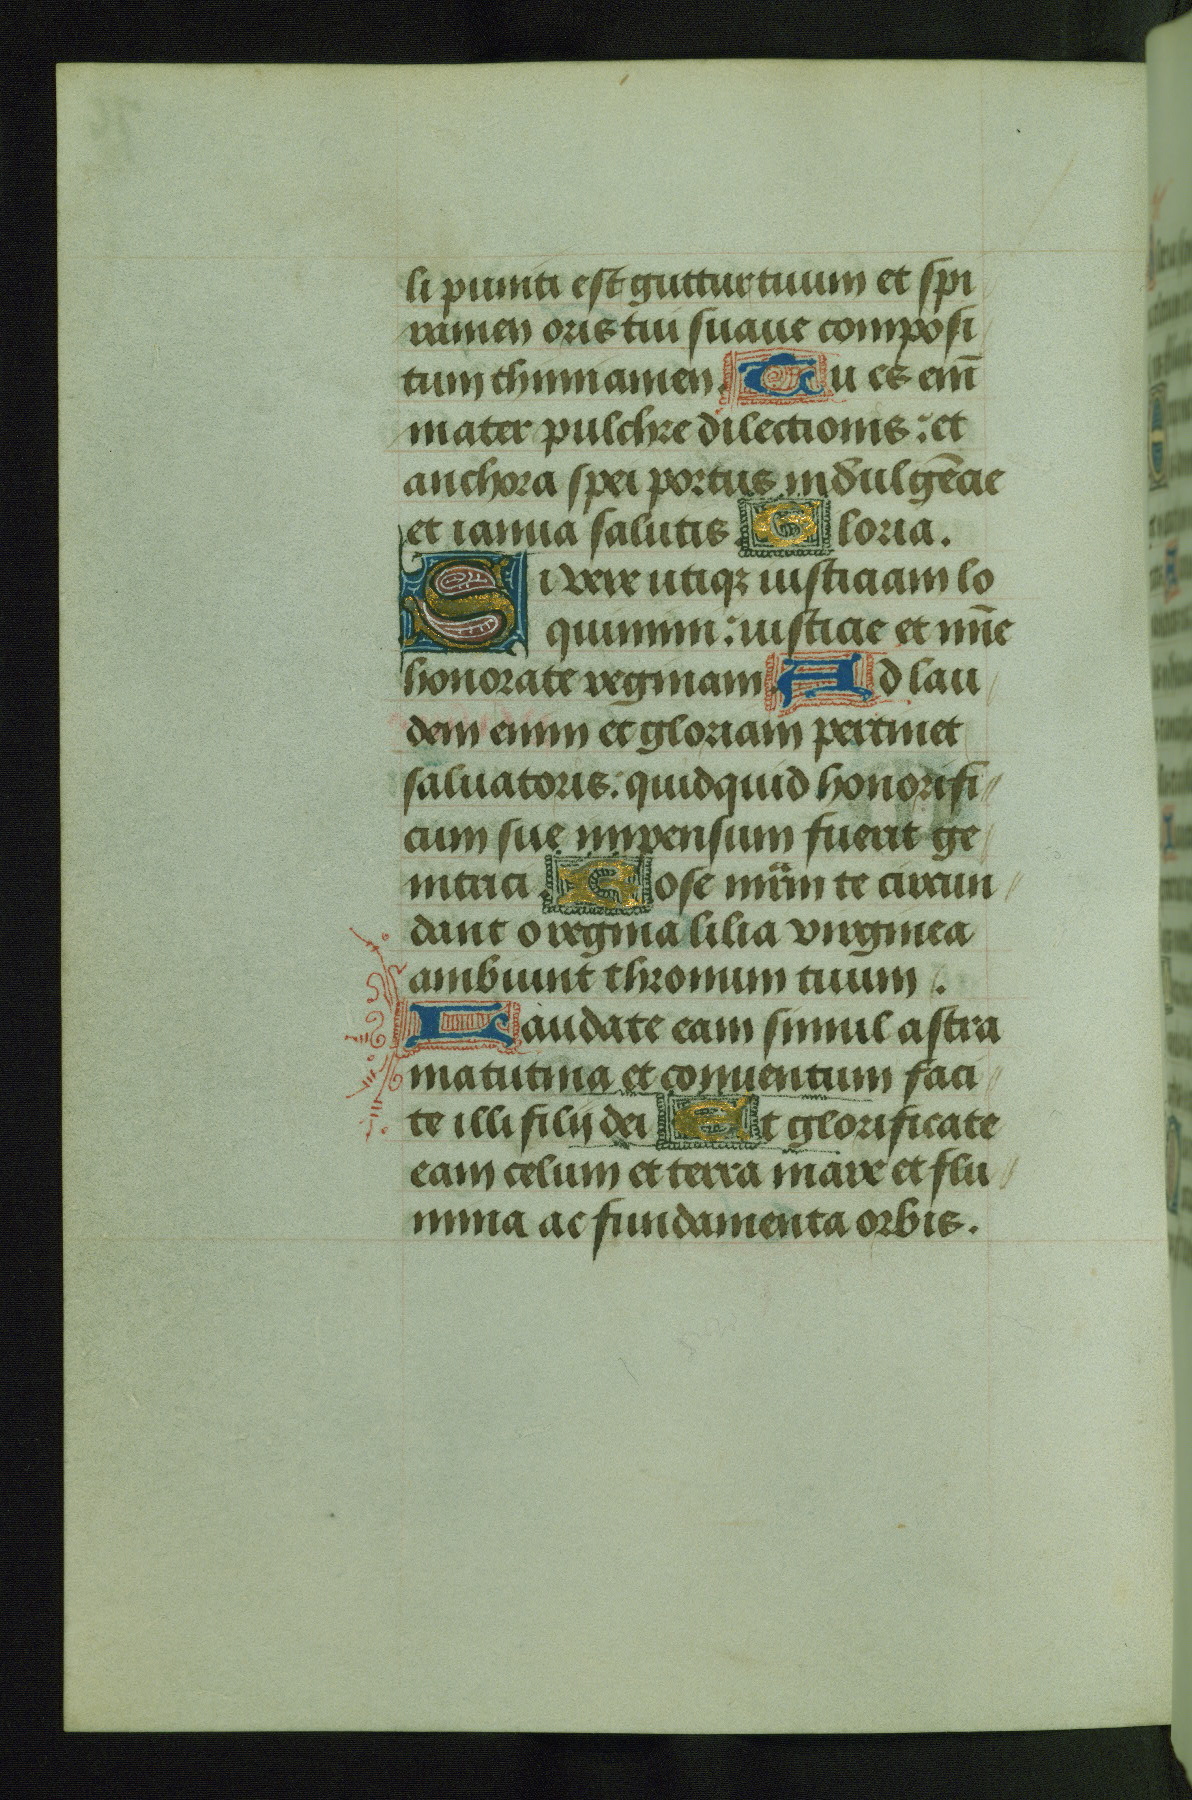 li puncti est guttur tuum et spi
ramen oris tui suaue composi
tum thimiamen. Tu es eni̅
mater pulchre dilectionis : et
anchora spei portus indulge̅cie
et ianua salutis. Gloria.
Si vere utiqꝫ iusticiam lo
quimini : iusticie et nr̅e
honorate reginam. Ad lau
dem enim et gloriam pertinet
saluatoris : quidquid honorifi
cum sue impensum fuerit ge
nitrici. Rose te circun
dant o regina lilia virginea
ambiunt thronum tuum.
Laudate eam simul astra
matutina et conuentum faci
te illi filij dei Et glorificate
eam celum et terra mare et flu
mina ac fundamenta orbis.